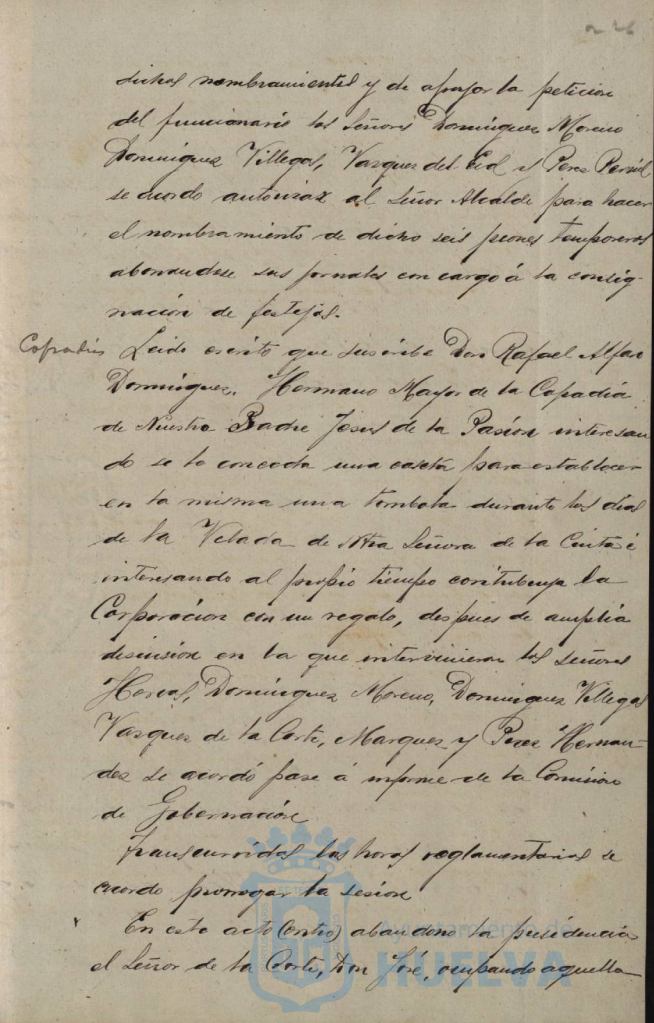 226
dichos nombramientos y de apoyar la peticion
del funcionario los Señores Dominguez Moreno
Dominguez Villegas, Vazquez del Cid y Perez Persid
se acordo autorizar al Señor Alcalde para hacer
el nombramiento de dicho seis peones temporeros
abonandose sus jornales con cargo á la consig-
nacion de festejos.
Cofradias Leido escrito que suscribe Don Rafael Alfaro
Dominguez. Hermano Mayor de la Copadia
de Nuestro Padre Jesus de la Pasión interesan
do se le conceda una caseta para establecer
en la misma una tombola durante los dias
de la Velada de Ntra Señora de la Cinta é
interesando al propio tiempo contribuya la
Corporacion con un regalo, despues de amplia
discusion en la que intervinieron los Señores
Dominguez Moreno, Dominguez Villegas
Vazquez de la Corte, Marquez y Perez Hernan-
dez se acordó pase á informe de la Comision
de Gobernación
Transcurridas las horas reglamentarias se
acordo prorrogar la sesion
En este acto abandono la presidencia
el Señor de la Corte, Don José, ocupando aquella
Ayuntamiento de
HUELVA